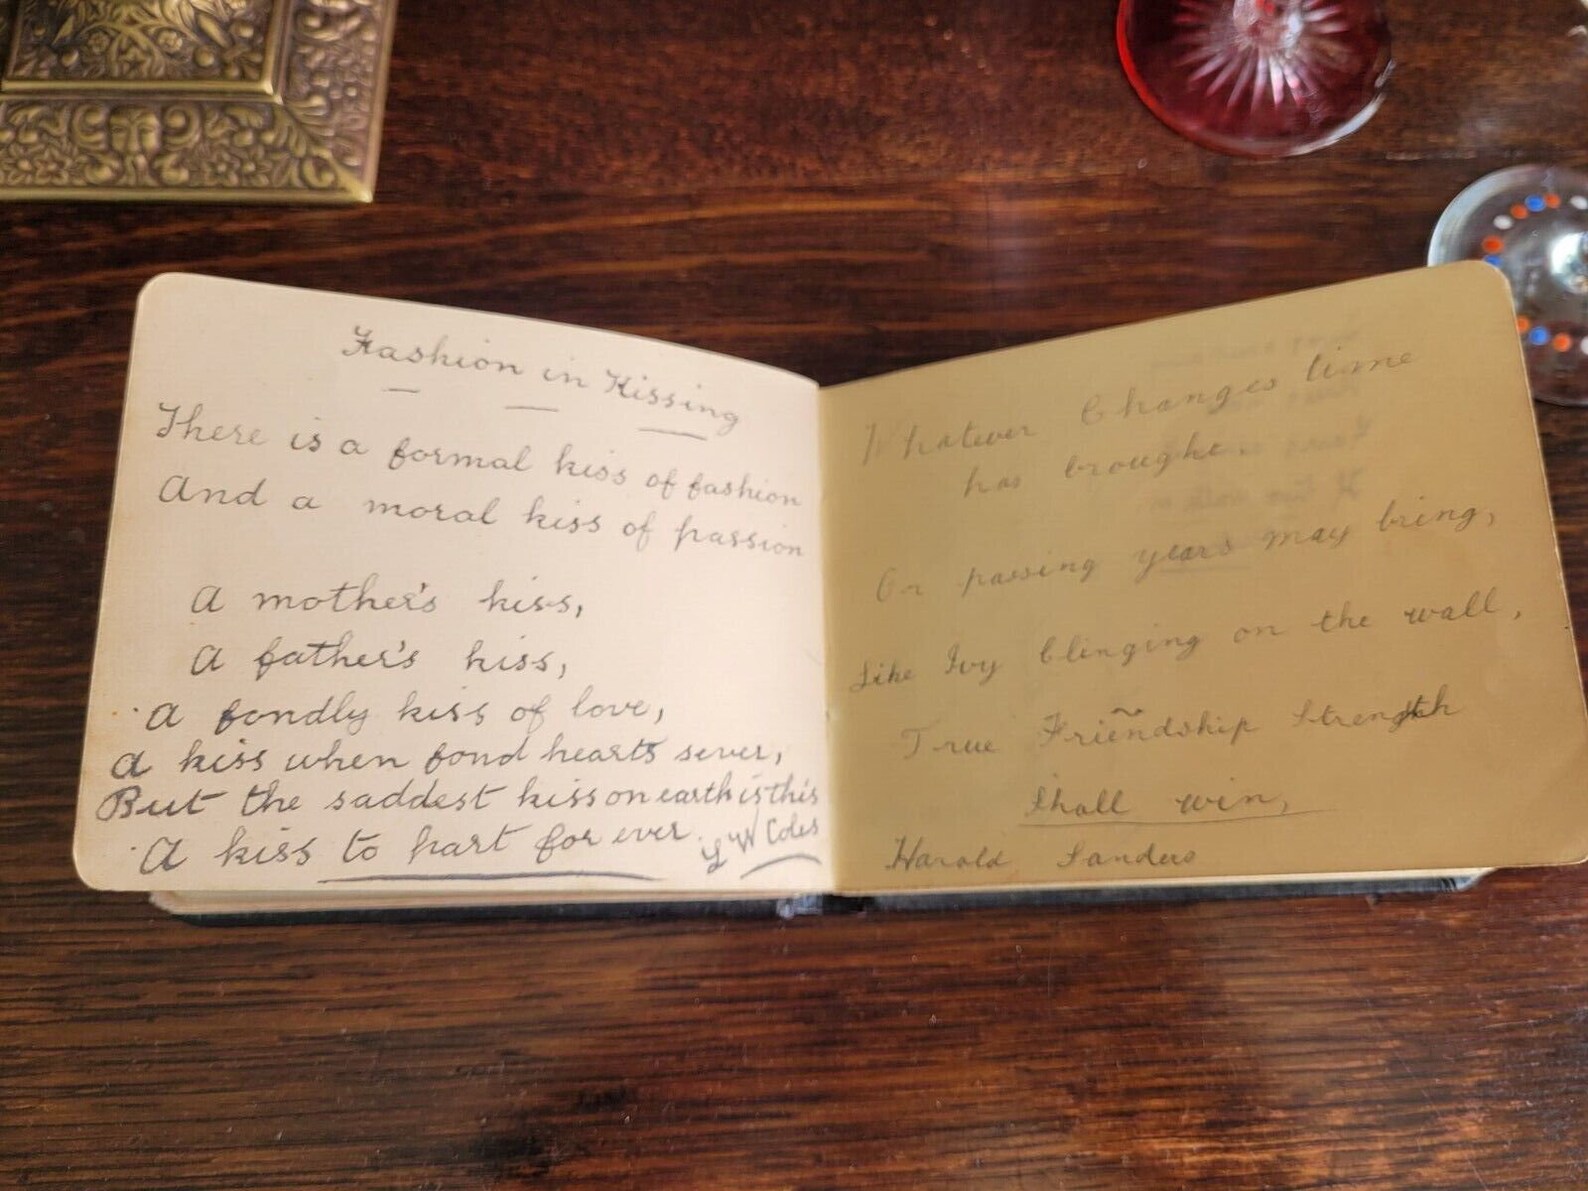 Fashion in Kissing
There is a formal kiss of fashion
And a moral kiss of passion
A mother's kiss,
A father's kiss,
A fondly kiss of love,
A kiss when fond hearts sever,
But the saddest kiss on earth is this
A kiss to part for ever.
W Coles
Whatever Changes time
has brought
Or passing years may bring,
Like Ivy Clinging on the wall,
True Friendship Strength
Shall win,
Harold Sanders